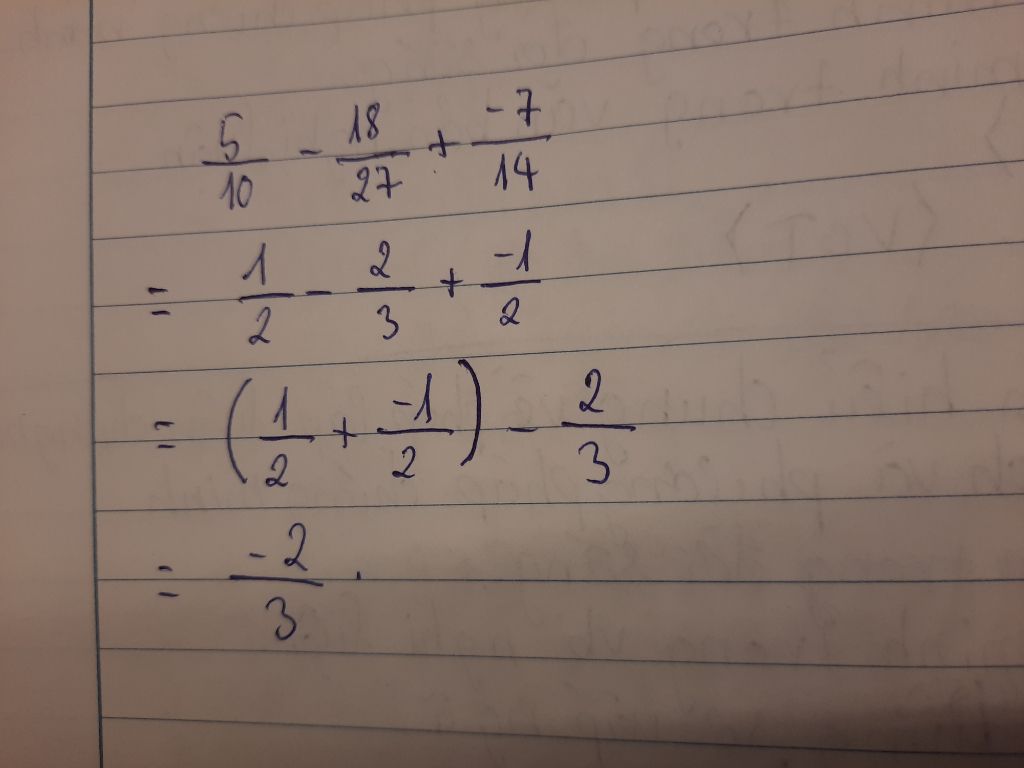 5/10 - 18/27 + -7/14
= 1/2 - 2/3 + -1/2
= (1/2 + -1/2) - 2/3
= -2/3.